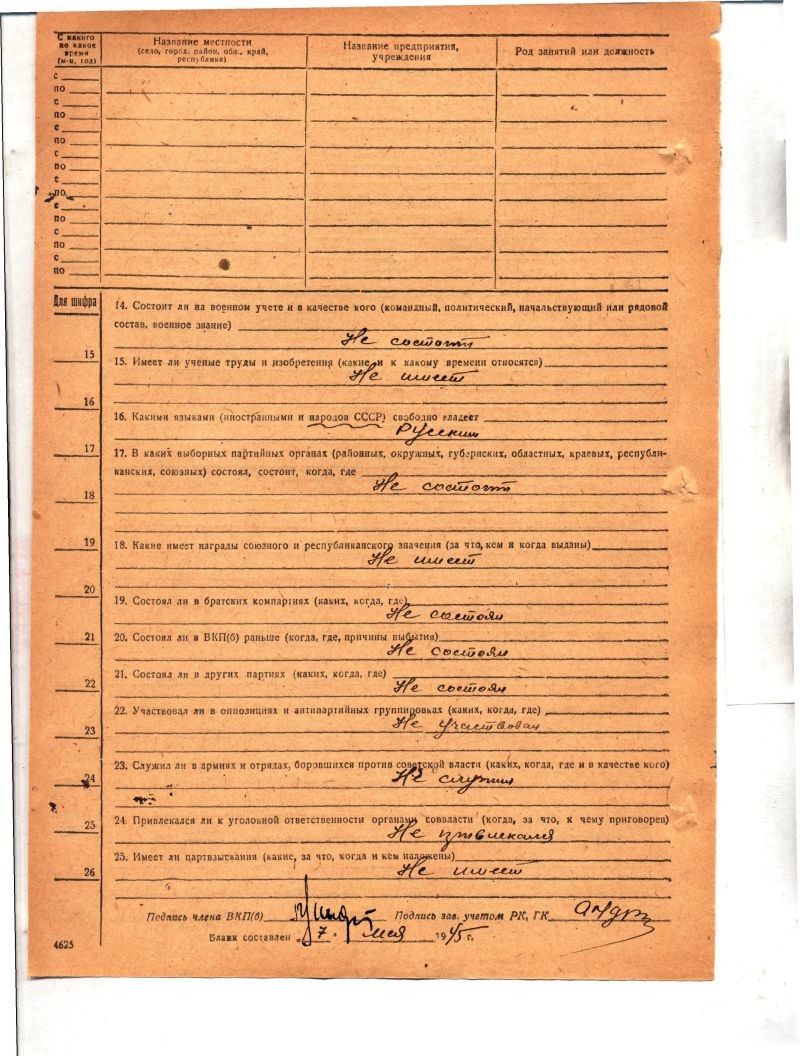 С какого по какое время (м-ц, год)
Название местности
(село, город, район, обл., край, республика)
Название предприятия, учреждения
Род занятий или должность
с
по
с
по
с
по
с
по
с
по
с
по
с
по
с
по
Для шифра
14. Состоит ли на военном учете и в качестве кого (командный, политический, начальствующий или рядовой
состав, военное звание)
Не состоит
15
15. Имеет ли ученые труды и изобретения (какие и к какому времени относятся)
Не имеет
16
16. Какими языками (иностранными и народов СССР) свободно владеет
Русским
17
17. В каких выборных партийных органах (районных, окружных, губернских, областных, краевых, республи-
канских, союзных) состоял, состоит, когда, где
Не состоит
18
19
18. Какие имеет награды союзного и республиканского значения (за что, кем и когда выданы)
Не имеет
20
19. Состоял ли в братских компартиях (каких, когда, где)
Не состоял
21
20. Состоял ли в ВКП(б) раньше (когда, где, причины выбытия)
Не состоял
21. Состоял ли в других партиях (каких, когда, где)
22
Не состоял
22. Участвовал ли в оппозициях и антипартийных группировках (каких, когда, где)
Не участвовал
23
23. Служил ли в армиях и отрядах, боровшихся против советской власти (каких, когда, где и в качестве кого)
24
Не служил
24. Привлекался ли к уголовной ответственности органами соввласти (когда, за что, к чему приговорен)
25
Не привлекался
25. Имеет ли партвзыскания (какие, за что, когда и кем наложены)
26
Не имеет
Подпись члена ВКП(б)
Подпись зав. учетом РК, ГК
Бланк составлен „7" мая 1945 г.
4625